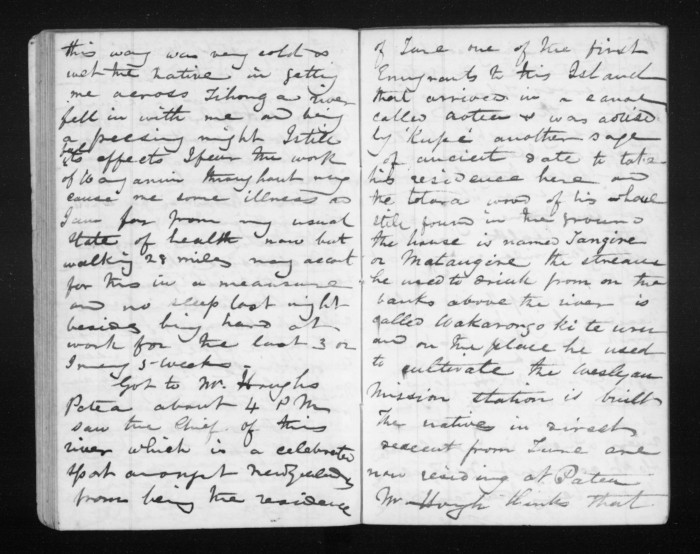 this way was very cold &
wet the native in getting
me across Tihonga river
fell in with me and being
a freezing night I still
feel its effects I fear the work
of Wanganui throughout may
cause me some illness as
I am far from my usual
state of health now but
walking 28 miles may account
for this in a measure
and no sleep last night
besides being hard at
work for the last 3 or
I may 5 weeks.
Got to Mr. Houghs
Patea about 4 P.M.
saw the Chief of this
river which is a celebrated
spot amongst New Zealanders
from being the residence
of Ture one of the first
Emigrants to this Island
that arrived in a canoe
called Aotea & was advised
by 'Kupe' another sage
of ancient date to take
his residence here and
the totara wood of his whare
still found in the ground
the house is named Tangire
or Matangire the stream
he used to drink from on the
banks above the river is
called Wakarongo ki te
and on the place he used
to cultivate the Wesleyan
Mission station is built
The natives in direct
descent from Ture are
now residing at Patea
Mr Hough thinks that